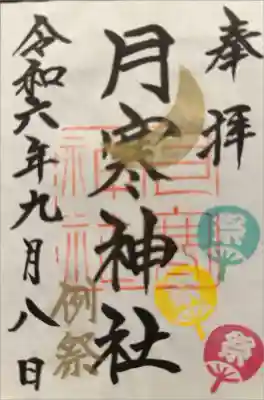 奉拝
月寒神社
令和六年九月八日
例祭
祭
祭